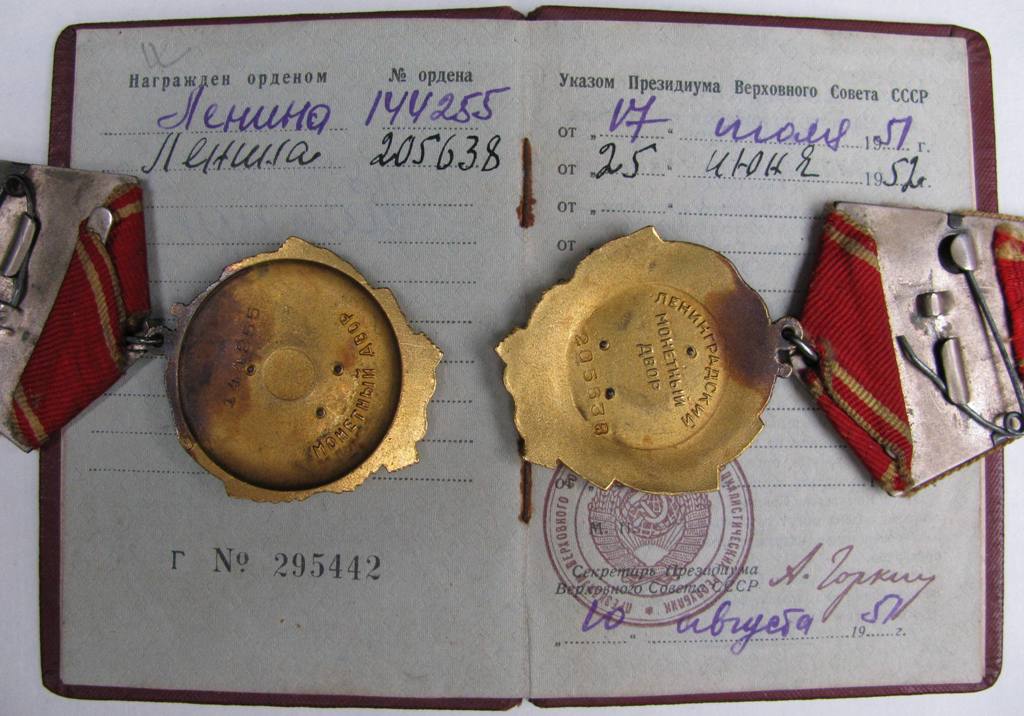 Награжден орденом № ордена
Ленина 144255
Ленина 205638
Г № 295442
Указом Президиума Верховного Совета СССР
от „17“ июля 1951 г.
от „25“ июня 1952г.
от „
от „
от
М. П.
Секретарь Президиума
Верховного Совета СССР
А. Горкин
„10“ августа 1951 г.
144255
МОНЕТНЫЙ ДВОР
ЛЕНИНГРАДСКИЙ
МОНЕТНЫЙ
ДВОР
205638